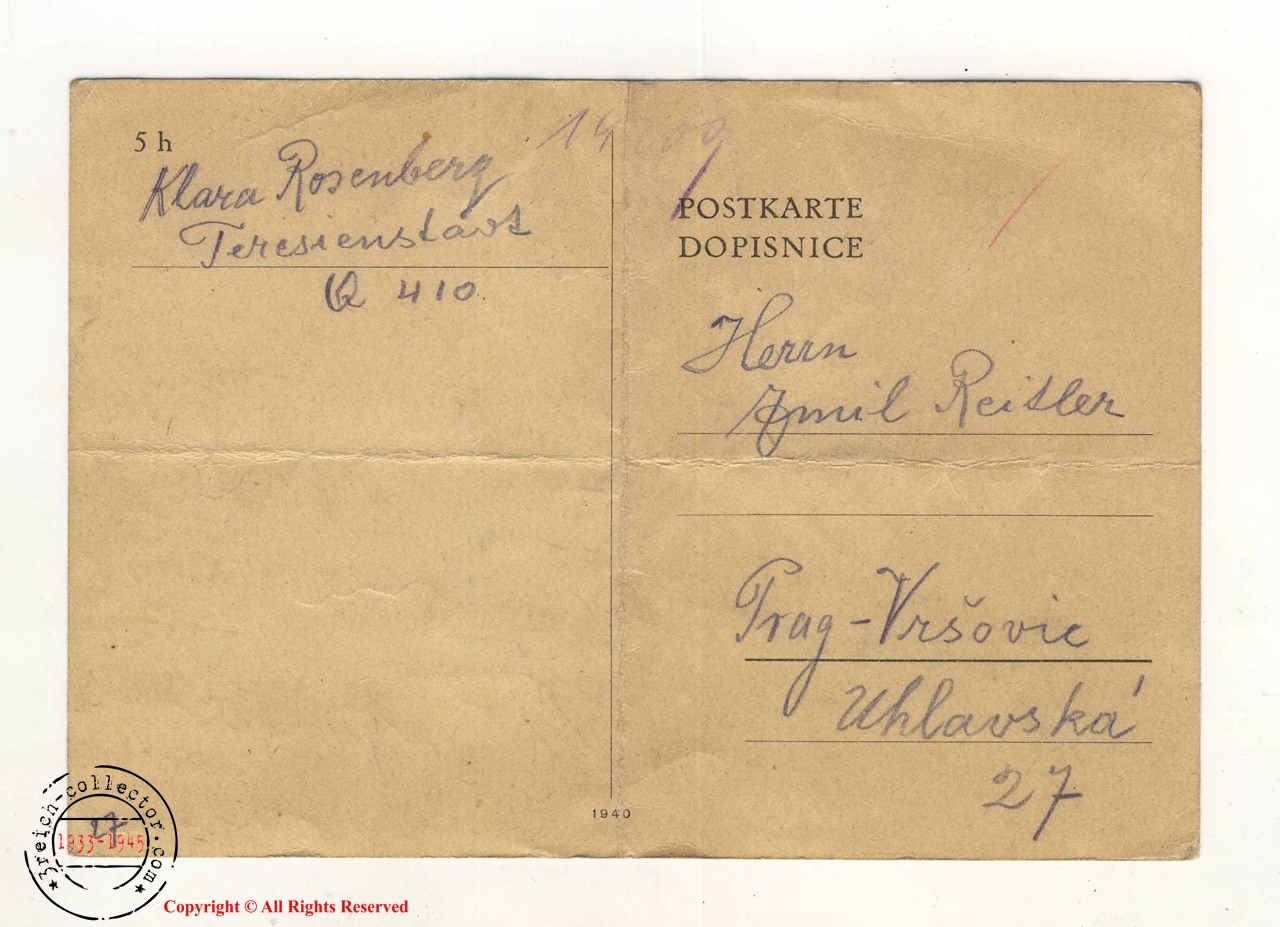 5 h
Klara Rosenberg
Teresienstadt
Q 410
14
POSTKARTE
DOPISNICE
Herrn
Emil Reitler
Prag-Vršovic
Uhlavská
27
1940
27
3reich-collector.com
1933-1945
Copyright © All Rights Reserved